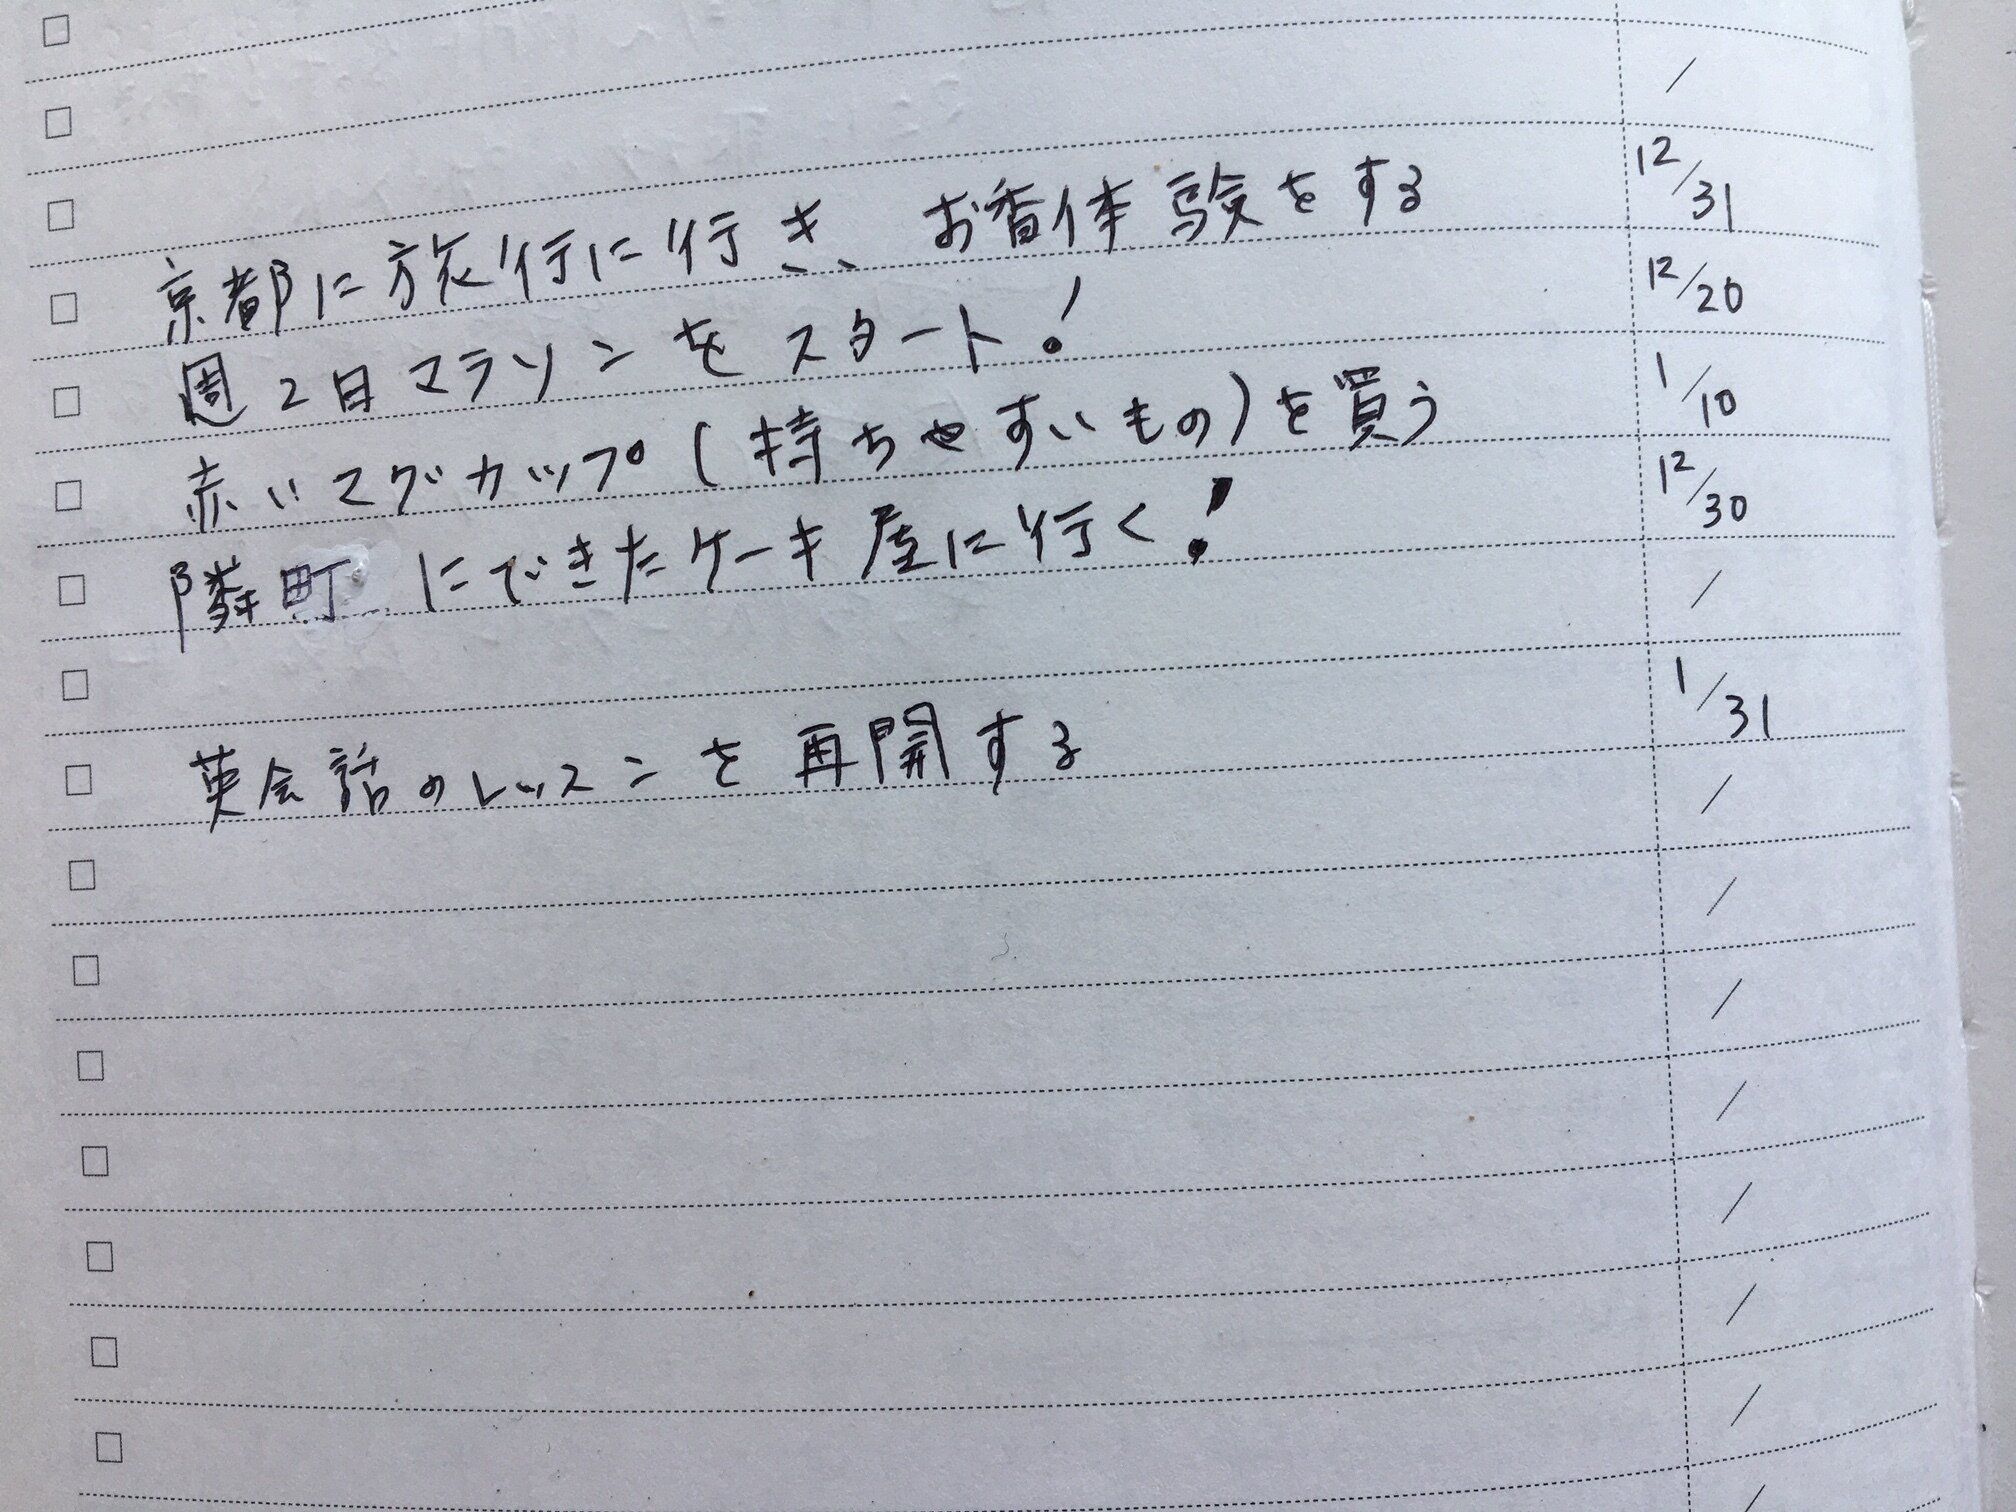 /
京都に旅行に行き、お香体験をする 12/31
週2日マラソンをスタート! 12/20
赤いマグカップ(持ちやすいもの)を買う 1/10
隣町にできたケーキ屋に行く! 12/30
/
英会話のレッスンを再開する 1/31
/
/
/
/
/
/
/
/